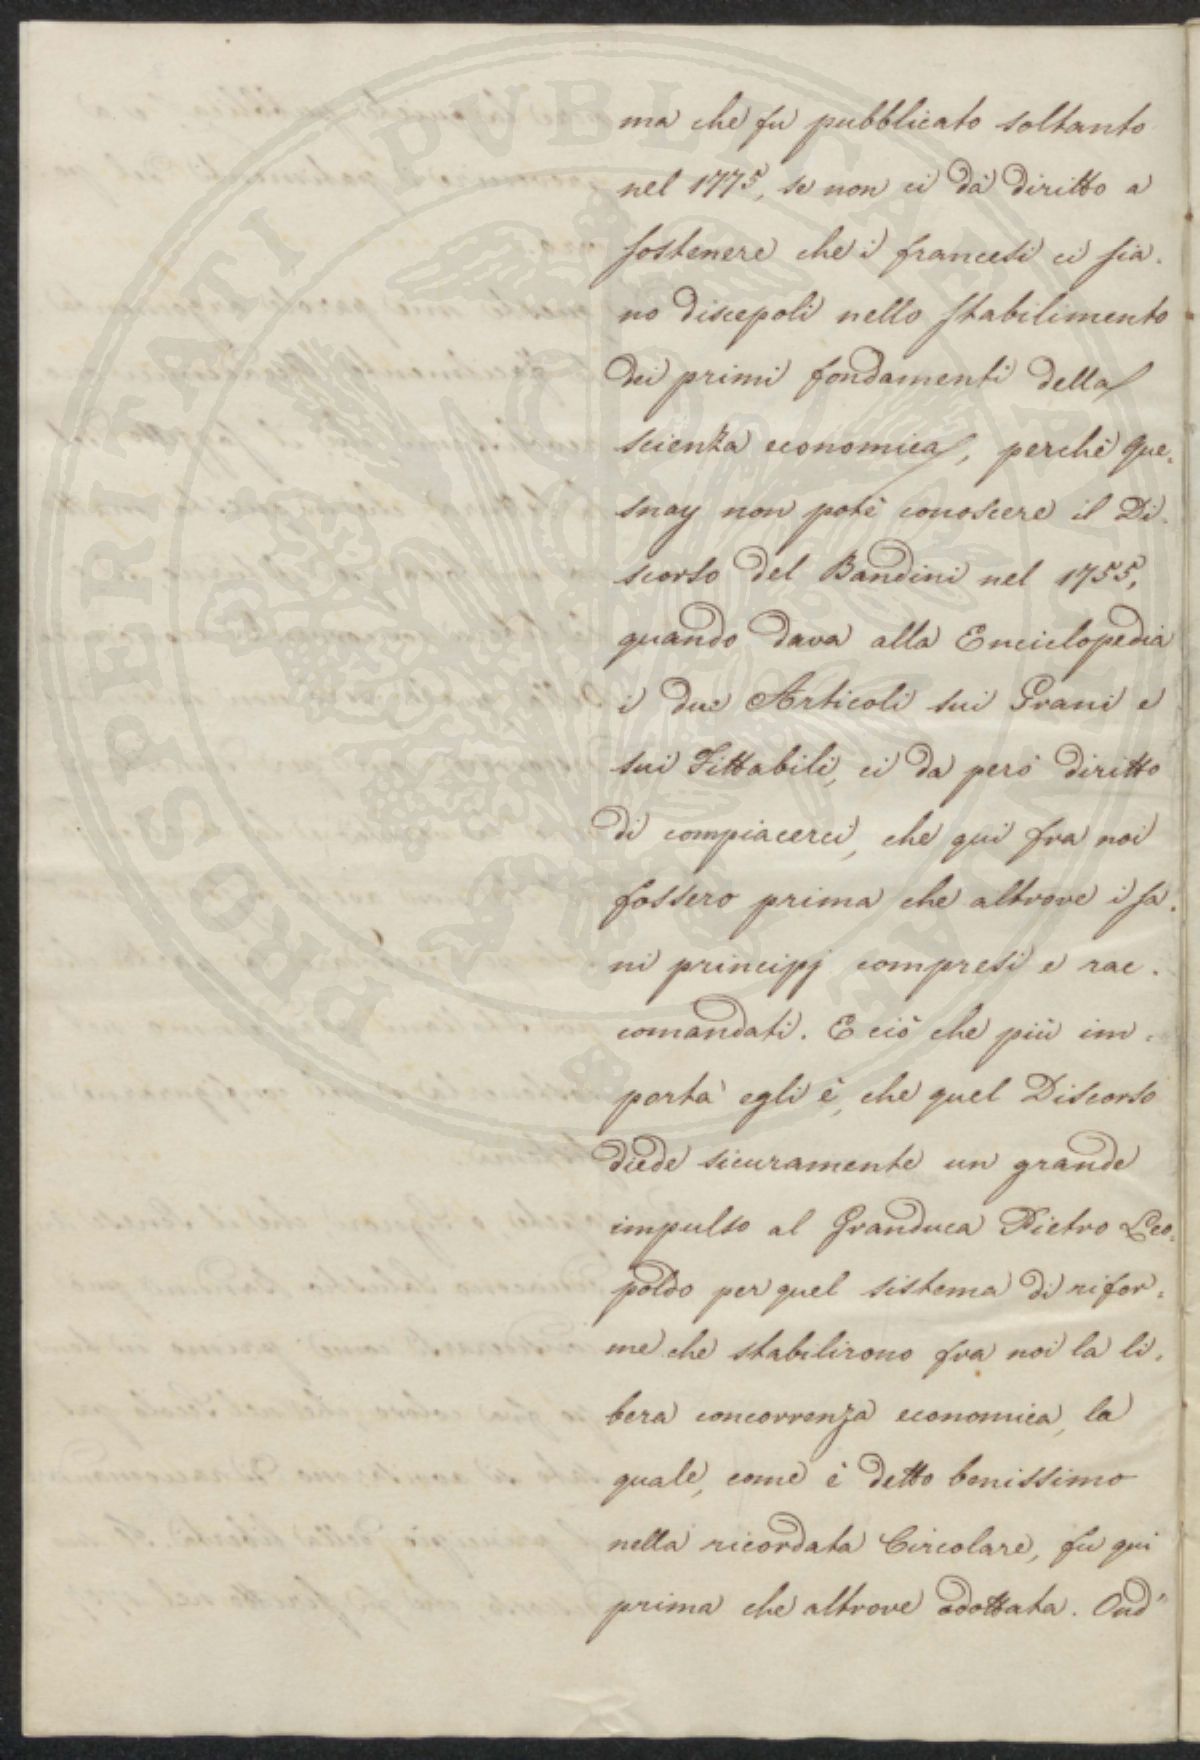 ma che fu pubblicato soltanto
nel 1775, se non ci dà diritto a
sostenere che i francesi ci sia.
no discepoli nello stabilimento
dei primi fondamenti della
scienza economica, perchè Que.
snay non potè conoscere il Di.
scorso del Bandini nel 1755,
quando dava alla Enciclopedia
i due Articoli sui Grani e
sui Fittabili, ci da però diritto
di compiacerci, che qui fra noi
fossero prima che altrove i sa.
ni principj compresi e rac.
comandati. E ciò che più im.
porta egli è, che quel Discorso
diede sicuramente un grande
impulso al Granduca Pietro Leo.
poldo per quel sistema di rifor.
me che stabilirono fra noi la li.
bera concorrenza economica, la
quale, come è detto benissimo
nella ricordata Circolare, fu qui
prima che altrove adottata. Ond'
PROSPERITATI PVBLICAE AVGENDAE